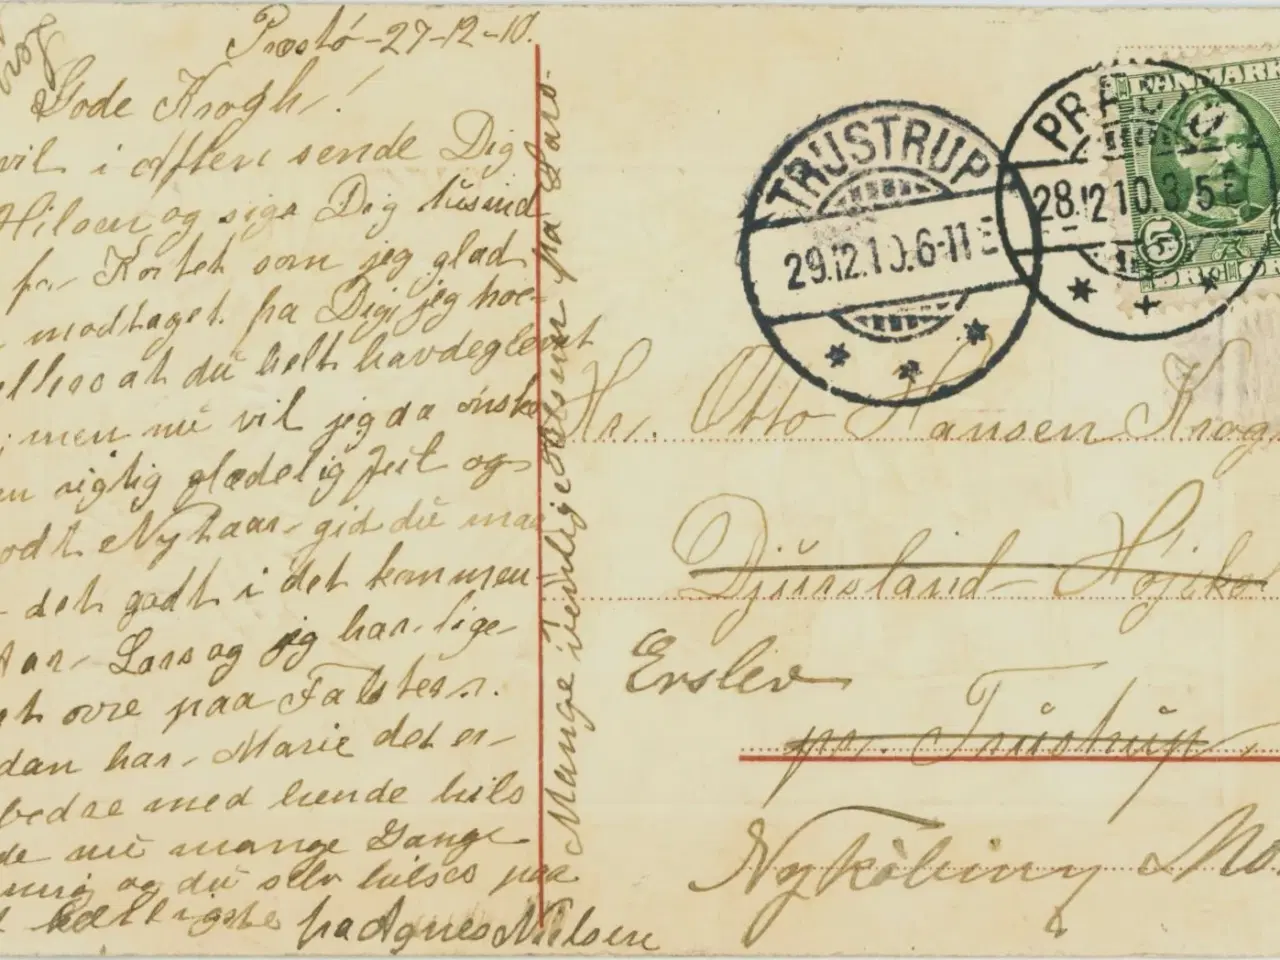 Præstö-27-12-10.
Gode Krogh!
vil i Aften sende Dig
Hilsen og sige Dig tusind
for Kortet som jeg glad
modtaget fra Dig, jeg hoe-
at du helt havde glemt
men nu vil jeg da önske
en rigtig glædelig Jul og
godt Nytaar- gid du maa
det godt i det kommen-
Aar- Lars og jeg har lige-
ovre paa Falster.
dan har- Marie det er-
bedre med hende hils
nu mange Gange
mig og du selv hilses paa
kærligste fra Agnes Nielsen
Mange venlige Hilsner fra Lars
TRUSTRUP
29.12.10.6-11 E
PRÆSTØ
28.12.10.3.5 E
DANMARK
5
Hr. Otto Hansen Krogh
Djursland- Højskol
Erslev
pr. Trustrup.
Nyköbing Mo